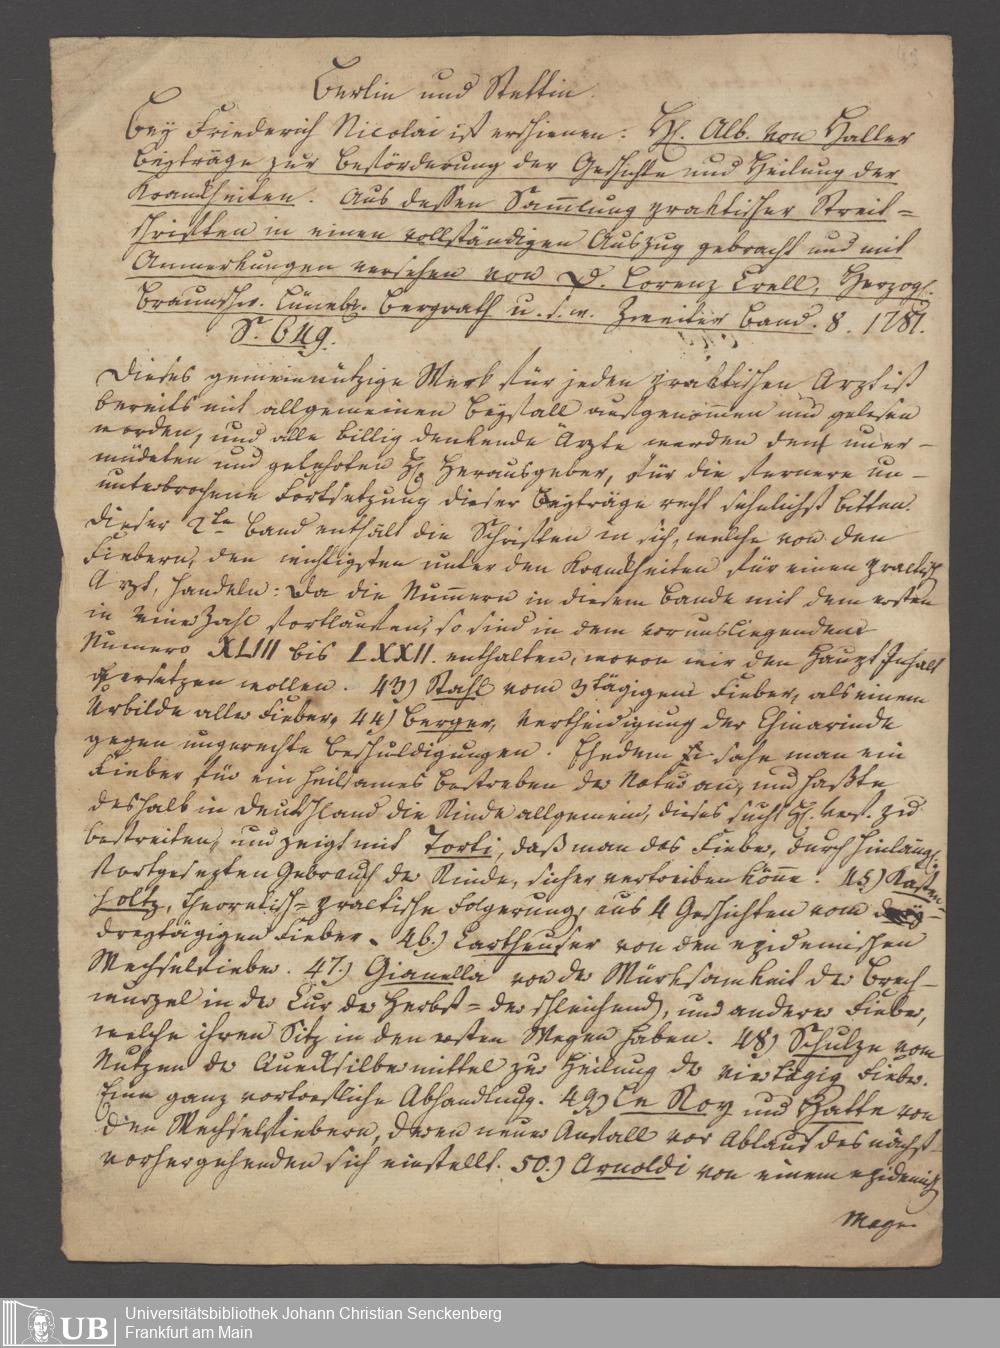 Berlin und Stettin.
Bey Friederich Nicolai ist erschienen: H. Alb. von Haller
Beyträge zur Beförderung der Geschichte und Heilung der
Krankheiten. Aus dessen Sam̄lung praktischer Streit=
schriften in einen vollständigen Auszug gebracht und mit
Anmerkungen versehen von D. Lorenz Crell, Herzogl.
Braunschw. Lüneb. Bergrath u. s. w. Zweiter Band. 8. 1781.
S. 649.
Dieses gemeinnützige Werk für jeden praktischen Arzt ist
bereits mit allgemeinen Beyfall aufgenom̄en und gelesen
worden, und alle billig denkende Ärzte werden dem uner-
müdeten und gelehrten H. Herausgeber, für die fernere un-
unterbrochene Fortsetzung dieser Beyträge recht sehnlichst bitten.
Dieser 2te Band enthält die Schriften in sich, welche von den
Fiebern, den wichtigsten unter den Krankheiten für einen praktisch
Arzt, handeln: Da die Num̄ern in diesem Bande mit dem ersten
in einer Zahl fortlaufen, so sind in dem vorunsliegenden
Numero XLIII bis LXXII. enthalten, wovon wir den Haupt Inhalt
hersetzen wollen. 43) Stahl vom 3tägigen Fieber, als einem
Urbilde aller Fieber, 44) Berger, Vertheidigung der Chinarinde
gegen ungerechte Beschuldigungen. Ehedem sahe man ein
Fieber für ein heilsames Bestreben der Natur an, und haßte
deshalb in Deutschland die Rinde allgemein, dieses sucht H. Verf. zu
bestreiten, und zeigt mit Torti, daß man das Fieber, durch hinlängl.
fortgesezten Gebrauch der Rinde, sicher vertreiben kön̄e. 45) Kasten=
holtz, theoretisch=praktische Folgerung, aus 4 Geschichten vom
dreytägigen Fieber. 46.) Cartheuser von den epidemischen
Wechselfieber. 47.) Gianella von der Würksamkeit der Brech-
wurzel in der Cur der Herbst= der schleichend, und anderer Fieber,
welche ihren Sitz in den ersten Wegen haben. 48) Schulze vom
Nutzen der Quecksilbermittel zur Heilung der viertägig Fieber.
Eine ganz vortrefliche Abhandlung. 49) Le Roy und Hatte von
den Wechselfiebern, deren neuer Anfall vor Ablauf des nächst-
vorhergehenden sich einstellt. 50.) Arnoldi von einem epidemisch
Mage-
Universitätsbibliothek Johann Christian Senckenberg
Frankfurt am Main
UB